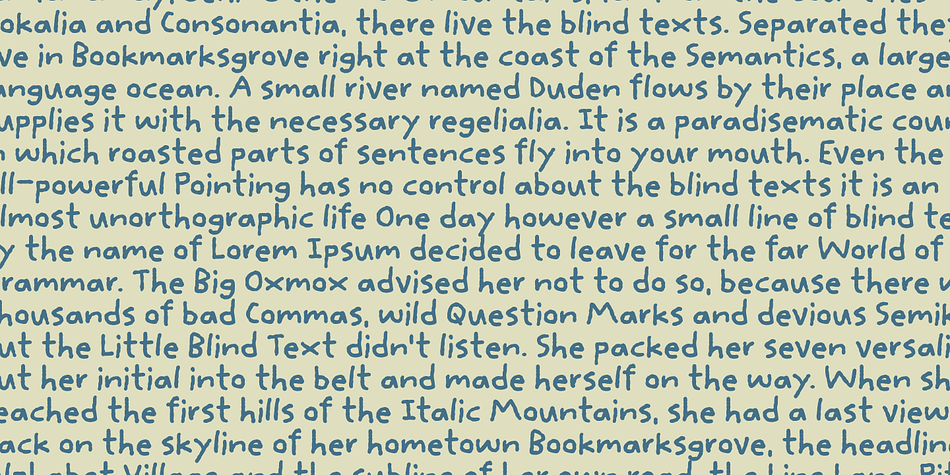 okalia and Consonantia, there live the blind texts. Separated the
ve in Bookmarksgrove right at the coast of the Semantics, a large
anguage ocean. A small river named Duden flows by their place a
upplies it with the necessary regelialia. It is a paradisematic cou
which roasted parts of sentences fly into your mouth. Even the
ll-powerful Pointing has no control about the blind texts it is an
lmost unorthographic life One day however a small line of blind te
y the name of Lorem Ipsum decided to leave for the far World of
rammar. The Big Oxmox advised her not to do so, because there w
housands of bad Commas, wild Question Marks and devious Semik
ut the Little Blind Text didn't listen. She packed her seven versali
ut her initial into the belt and made herself on the way. When sh
eached the first hills of the Italic Mountains, she had a last view
ack on the skyline of her hometown Bookmarksgrove, the headlin